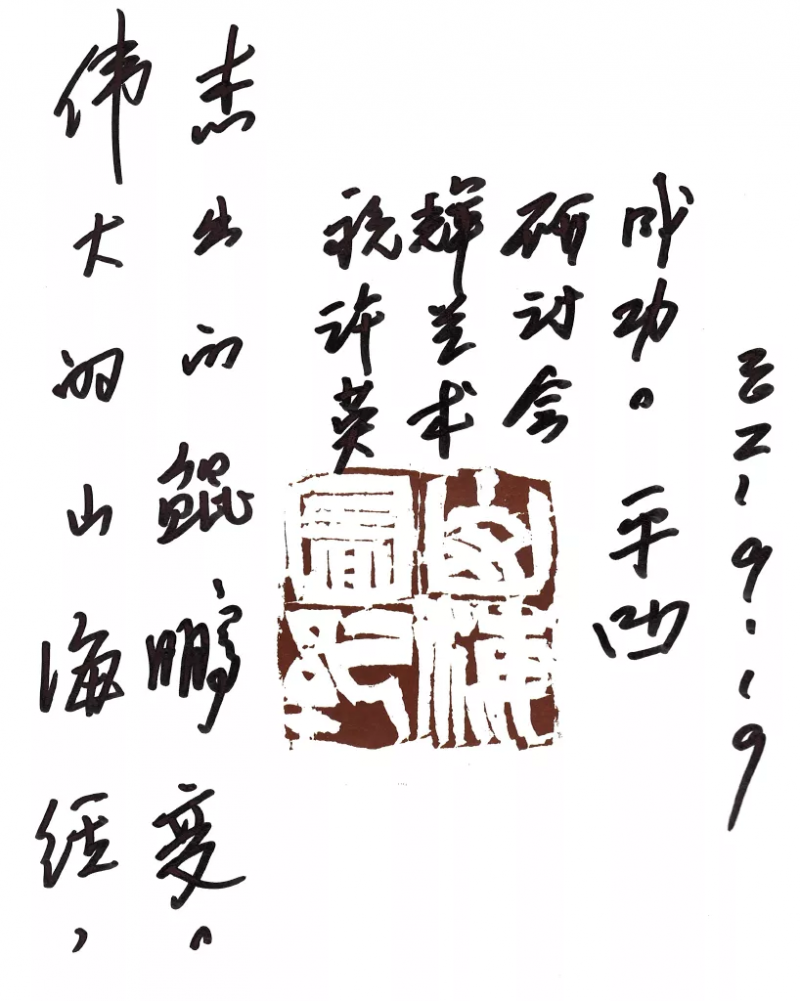 伟大的山海经，
杰出的鲲鹏变。
祝许英
辉艺术
研讨会
成功。平凹
22.9.19